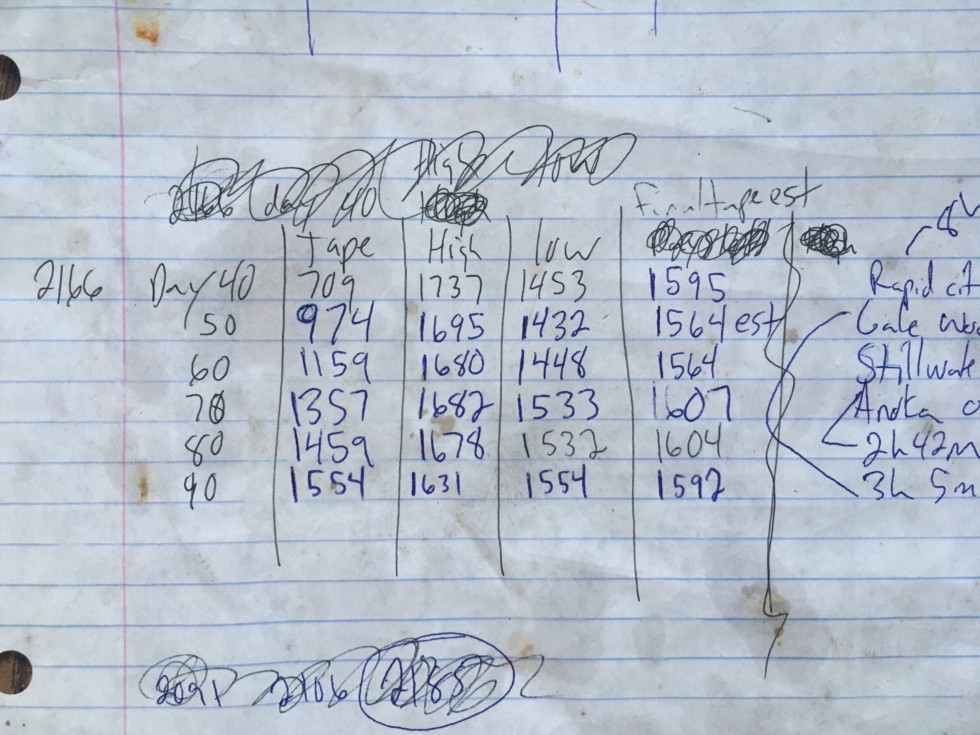 2166 day 40 High low
Final tape est
Tape High low
2166 Day 40 709 1737 1453 1595 Rapid cit
50 974 1695 1432 1564 est Gale
60 1159 1680 1448 1564 Stillwate
70 1357 1682 1533 1607 Anoka
80 1459 1678 1532 1604 2h 42m
90 1554 1631 1554 1592 3h 5m
2106